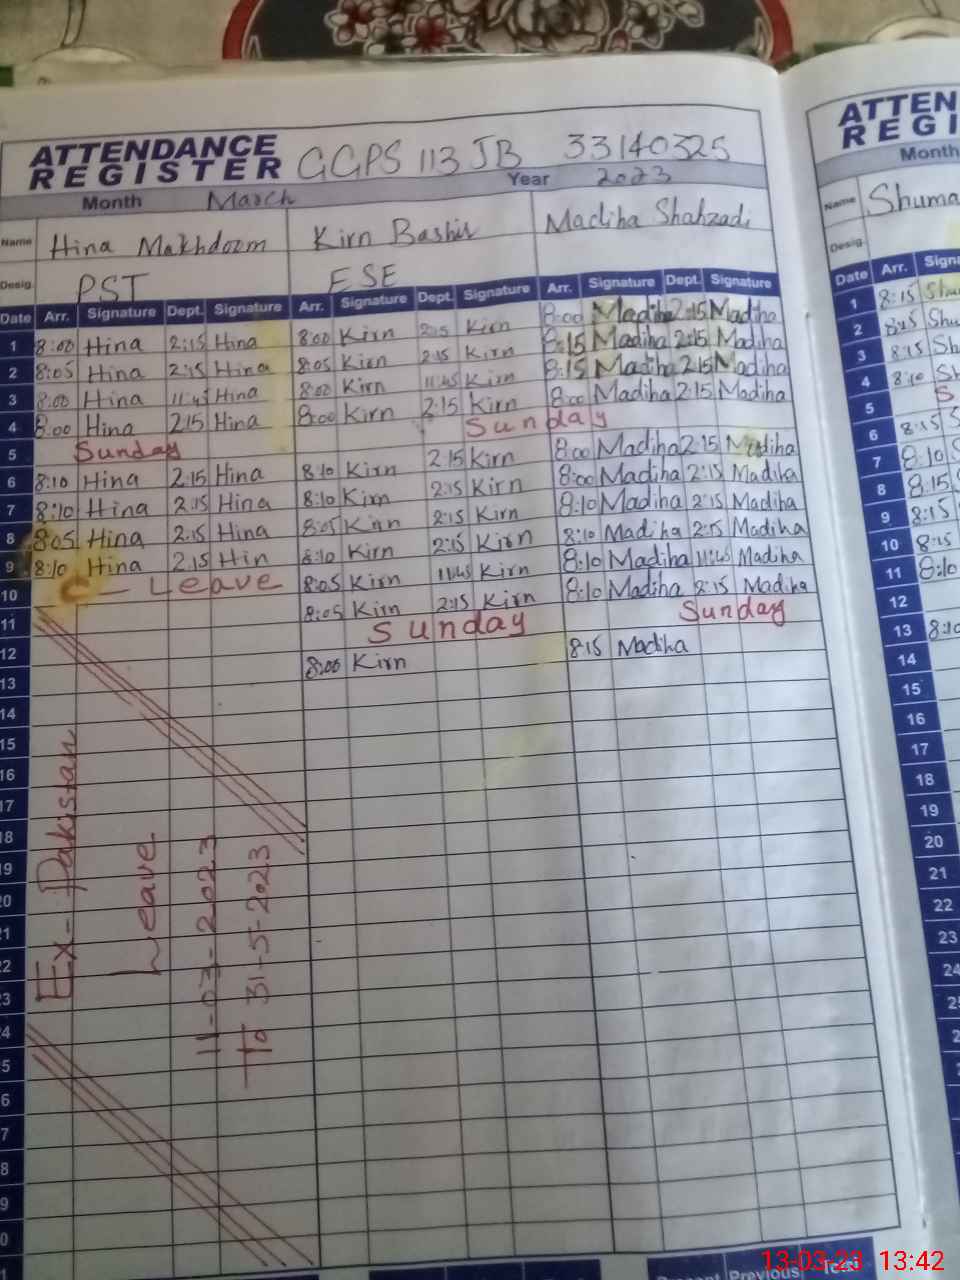 ATTENDANCE REGISTER GGPS 113 JB 33140325
Month March Year 2023
Name Hina Makhdoom Kirn Bashir Madiha Shahzadi
Desig. PST ESE
Date Arr. Signature Dept. Signature Arr. Signature Dept. Signature Arr. Signature Dept. Signature
1 8:00 Hina 2:15 Hina 8:00 Kirn 2:15 Kirn 8:00 Madiha 2:15 Madiha
2 8:05 Hina 2:15 Hina 8:05 Kirn 2:15 Kirn 8:15 Madiha 2:15 Madiha
3 8:00 Hina 11:45 Hina 8:00 Kirn 11:45 Kirn 8:15 Madiha 2:15 Madiha
4 8:00 Hina 2:15 Hina 8:00 Kirn 2:15 Kirn 8:00 Madiha 2:15 Madiha
5 Sunday Sunday
6 8:10 Hina 2:15 Hina 8:10 Kirn 2:15 Kirn 8:00 Madiha 2:15 Madiha
7 8:10 Hina 2:15 Hina 8:10 Kirn 2:15 Kirn 8:00 Madiha 2:15 Madiha
8 8:05 Hina 2:15 Hina 8:05 Kirn 2:15 Kirn 8:10 Madiha 2:15 Madiha
9 8:10 Hina 2:15 Hin 8:10 Kirn 2:15 Kirn 8:10 Madiha 2:15 Madiha
10 C - Leave 8:05 Kirn 11:45 Kirn 8:10 Madiha 11:45 Madiha
11 8:05 Kirn 2:15 Kirn 8:10 Madiha 2:15 Madiha
12 Sunday Sunday
13 8:00 Kirn 8:15 Madiha
14
15
16
17
18
19
20
21
22
23
24
Ex-Pakistan
Leave
11-03-2023
To 31-5-2023
ATTEN
REGI
Month
Name Shuma
Desig.
Date Arr. Signa
1 8:15 Shu
2 8:15 Shu
3 8:15 Sh
4 8:10 Sh
5 S
6 8:15 S
7 8:10
8 8:15
9 8:15
10 8:15
11 8:10
12
13 8:10
14
15
16
17
18
19
20
21
22
23
24
Present Previous Total
13-03-23 13:42